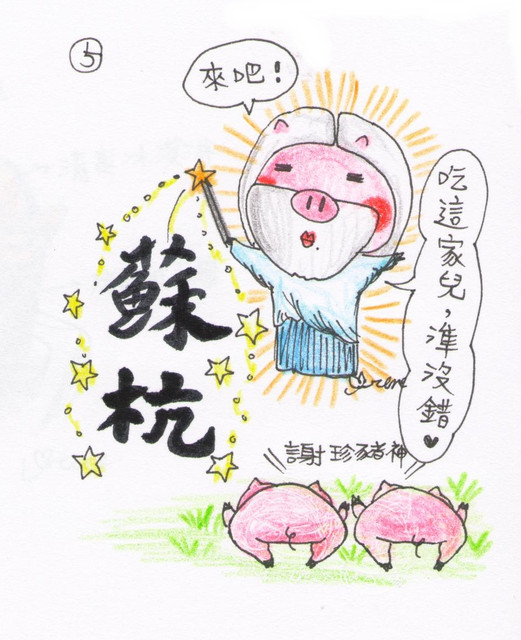 5
來吧!
吃這家兒，準沒錯♥
蘇杭
Iren
謝珍豬神